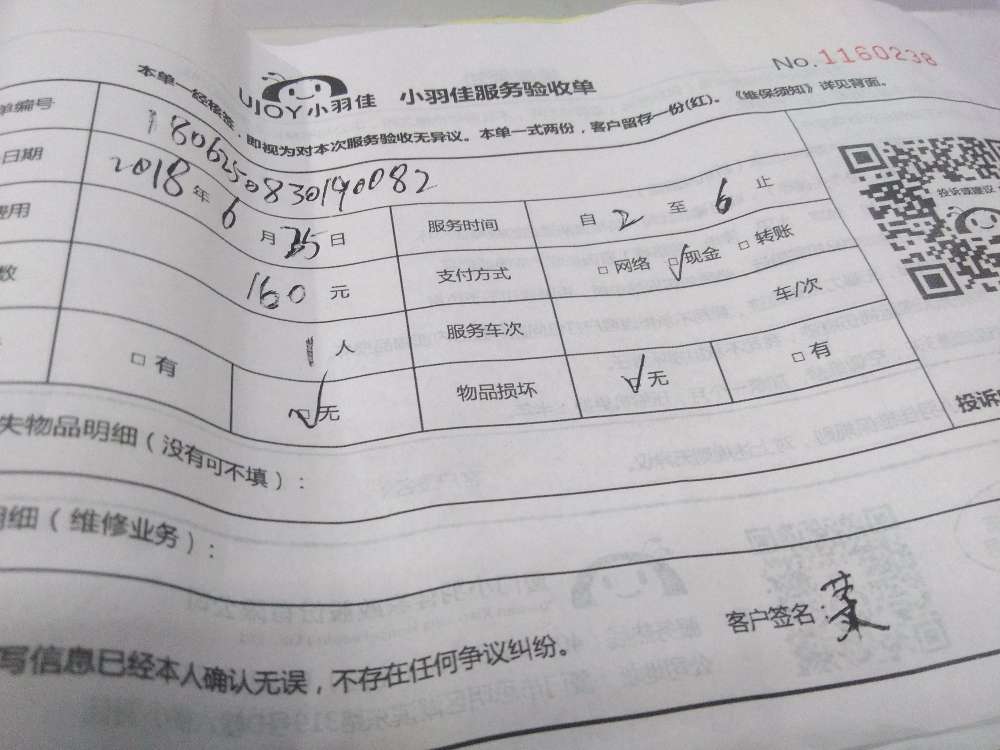 UJOY小羽佳 小羽佳服务验收单 No.1160238
本单一经核签，即视为对本次服务验收无异议。本单一式两份，客户留存一份(红)。《维保须知》详见背面。
单编号 1806250830190082
日期 2018年6月25日 服务时间 自2至6止
费用 160元 支付方式 □网络 ☑现金 □转账
数 1人 服务车次 车/次
□有 ☑无 物品损坏 ☑无 □有
投诉或建议
投诉
失物品明细（没有可不填）：
明细（维修业务）：
客户签名：
写信息已经本人确认无误，不存在任何争议纠纷。